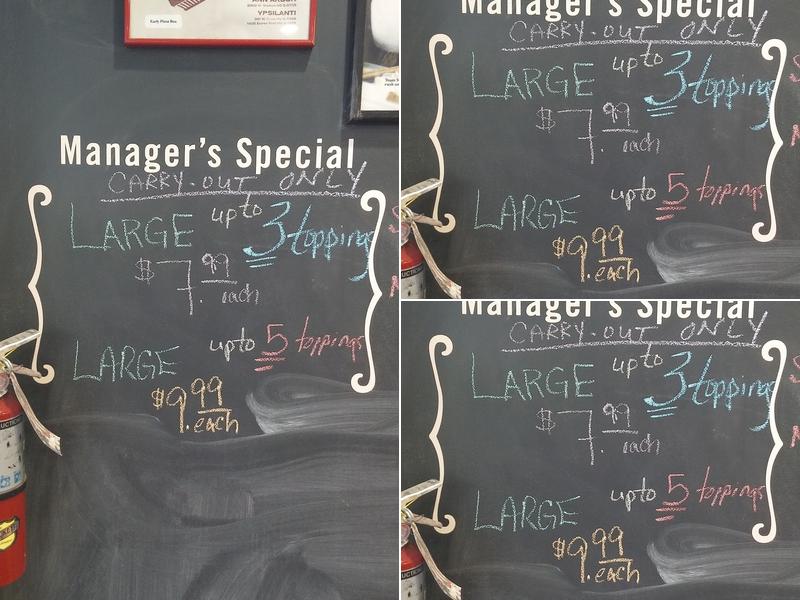 Early Pizza Box
YPSILANTI
Manager's Special
CARRY-OUT ONLY
LARGE upto 3 toppings
$7.99 each
LARGE upto 5 toppings
$9.99 each
Manager's Special
CARRY-OUT ONLY
LARGE upto 3 toppings
$7.99 each
LARGE upto 5 toppings
$9.99 each
Manager's Special
CARRY-OUT ONLY
LARGE upto 3 toppings
$7.99 each
LARGE upto 5 toppings
$9.99 each